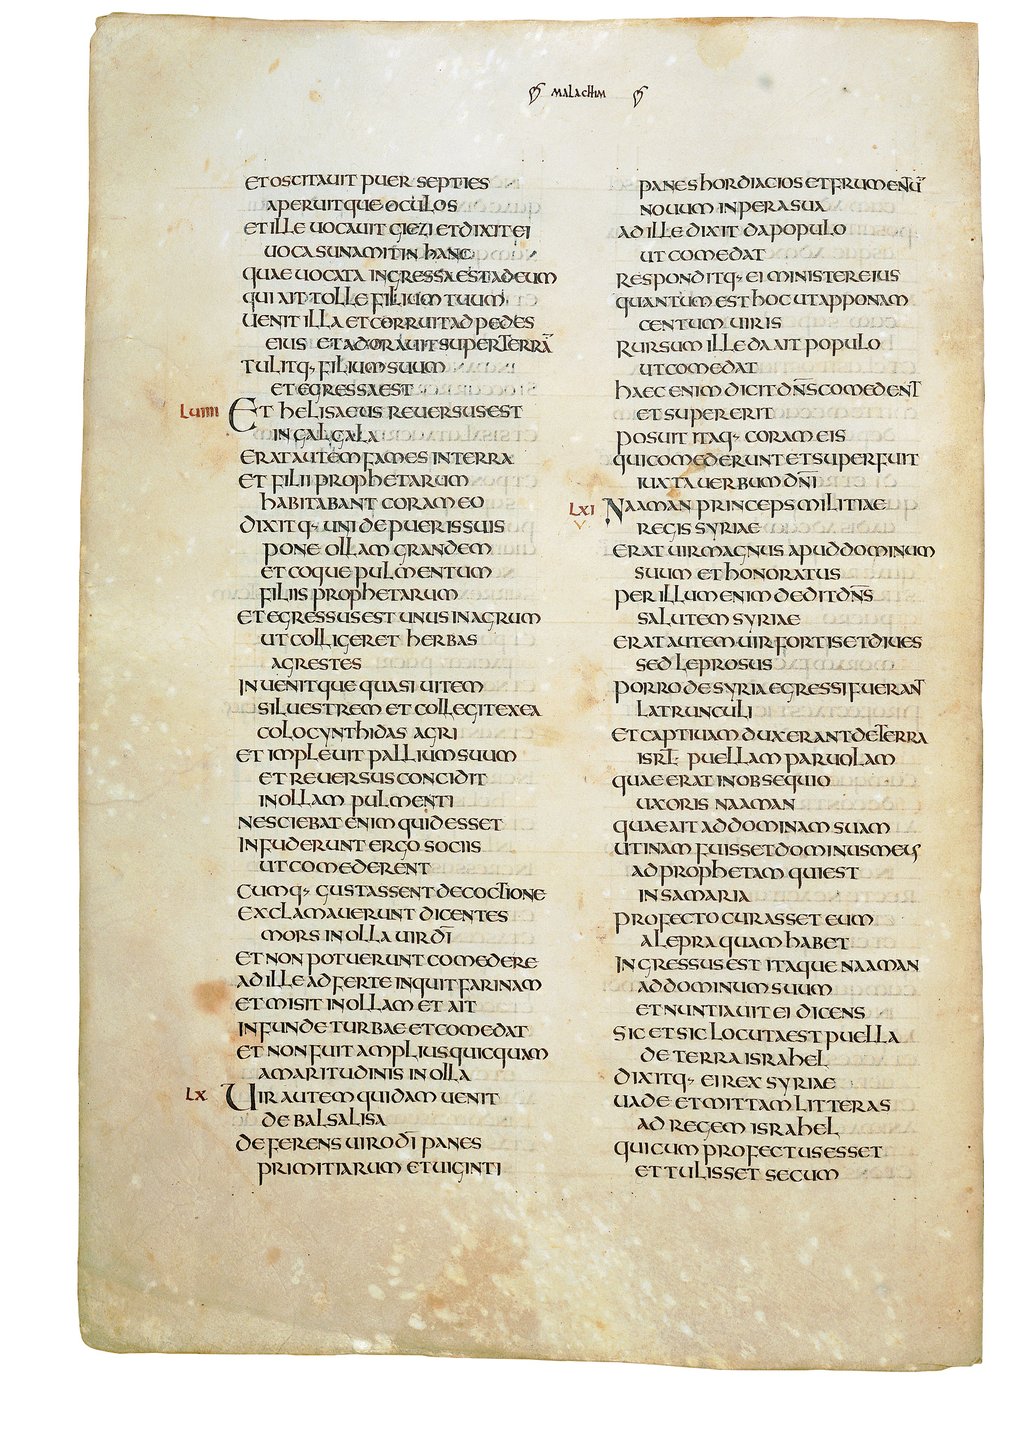 MALACHIM
ET OSCITAUIT PUER SEPTIES
APERUITQUE OCULOS
ET ILLE UOCAUIT GIEZI ET DIXIT EI
UOCA SUNAMITIN HANC
QUAE UOCATA INGRESSA EST AD EUM
QUI AIT TOLLE FILIUM TUUM
UENIT ILLA ET CORRUIT AD PEDES
EIUS ET ADORAUIT SUPER TERRĀ
TULITQ· FILIUM SUUM
ET EGRESSA EST
LUIIII ET HELISAEUS REUERSUS EST
IN GALGALA
ERAT AUTEM FAMES IN TERRA
ET FILII PROPHETARUM
HABITABANT CORAM EO
DIXITQ· UNI DE PUERIS SUIS
PONE OLLAM GRANDEM
ET COQUE PULMENTUM
FILIIS PROPHETARUM
ET EGRESSUS EST UNUS IN AGRUM
UT COLLIGERET HERBAS
AGRESTES
INUENITQUE QUASI UITEM
SILUESTREM ET COLLEGIT EX EA
COLOCYNTHIDAS AGRI
ET IMPLEUIT PALLIUM SUUM
ET REUERSUS CONCIDIT
IN OLLAM PULMENTI
NESCIEBAT ENIM QUID ESSET
INFUDERUNT ERGO SOCIIS
UT COMEDERENT
CUMQ· GUSTASSENT DE COCTIONE
EXCLAMAUERUNT DICENTES
MORS IN OLLA UIR DĪ
ET NON POTUERUNT COMEDERE
AD ILLE ADFERTE INQUIT FARINAM
ET MISIT IN OLLAM ET AIT
INFUNDE TURBAE ET COMEDAT
ET NON FUIT AMPLIUS QUICQUAM
AMARITUDINIS IN OLLA
LX UIR AUTEM QUIDAM UENIT
DE BALSALISA
DEFERENS UIRO DĪ PANES
PRIMITIARUM ET UIGINTI
PANES HORDIACIOS ET FRUMENTŪ
NOUUM IN PERA SUA
AD ILLE DIXIT DA POPULO
UT COMEDAT
RESPONDITQ· EI MINISTER EIUS
QUANTUM EST HOC UT APPONAM
CENTUM UIRIS
RURSUM ILLE DA AIT POPULO
UT COMEDAT
HAEC ENIM DICIT DN̄S COMEDENT
ET SUPERERIT
POSUIT ITAQ· CORAM EIS
QUI COMEDERUNT ET SUPERFUIT
IUXTA UERBUM DN̄I
LXI NAAMAN PRINCEPS MILITIAE
V REGIS SYRIAE
ERAT UIR MAGNUS APUD DOMINUM
SUUM ET HONORATUS
PER ILLUM ENIM DEDIT DN̄S
SALUTEM SYRIAE
ERAT AUTEM UIR FORTIS ET DIUES
SED LEPROSUS
PORRO DE SYRIA EGRESSI FUERANT
LATRUNCULI
ET CAPTIUAM DUXERANT DE TERRA
ISRL̄ PUELLAM PARUOLAM
QUAE ERAT IN OBSEQUIO
UXORIS NAAMAN
QUAE AIT AD DOMINAM SUAM
UTINAM FUISSET DOMINUS MEUS
AD PROPHETAM QUI EST
IN SAMARIA
PROFECTO CURASSET EUM
A LEPRA QUAM HABET
INGRESSUS EST ITAQUE NAAMAN
AD DOMINUM SUUM
ET NUNTIAUIT EI DICENS
SIC ET SIC LOCUTA EST PUELLA
DE TERRA ISRAHEL
DIXITQ· EI REX SYRIAE
UADE ET MITTAM LITTERAS
AD REGEM ISRAHEL
QUI CUM PROFECTUS ESSET
ET TULISSET SECUM